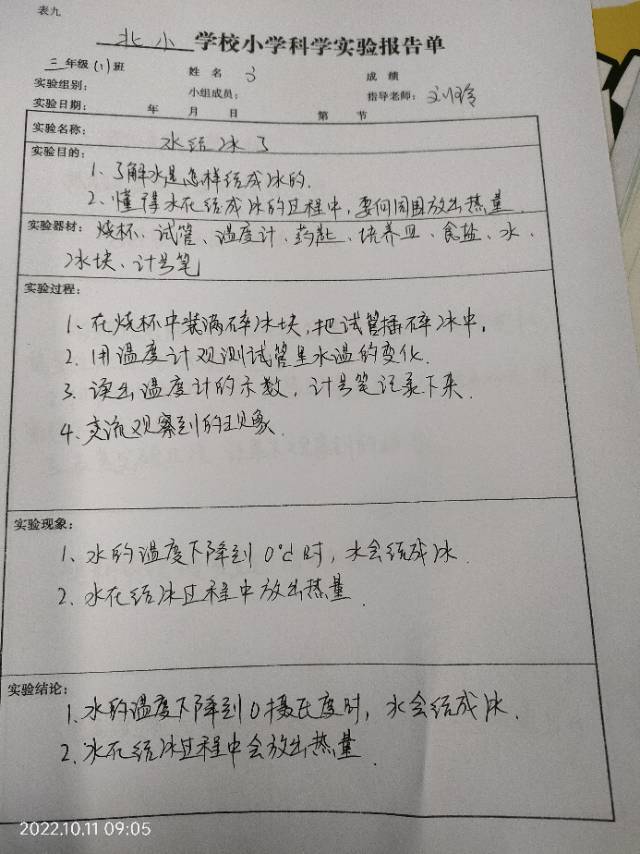 表九
北小 学校小学科学实验报告单
三年级(1)班 姓名 成绩
实验组别: 小组成员: 指导老师: 刘玲
实验日期: 年 月 日 第 节
实验名称: 水结冰了
实验目的:
1、了解水是怎样结成冰的.
2、懂得水在结成冰的过程中,要向周围放出热量.
实验器材: 烧杯、试管、温度计、药匙、培养皿、食盐、水、
冰块、计号笔
实验过程:
1、在烧杯中装满碎冰块,把试管插碎冰中,
2、用温度计观测试管里水温的变化.
3、读出温度计的示数,计号笔记录下来.
4、交流观察到的现象.
实验现象:
1、水的温度下降到0℃时,水会结成冰.
2、水在结冰过程中放出热量.
实验结论:
1、水的温度下降到0摄氏度时,水会结成冰.
2、水在结冰过程中会放出热量.
2022.10.11 09:05